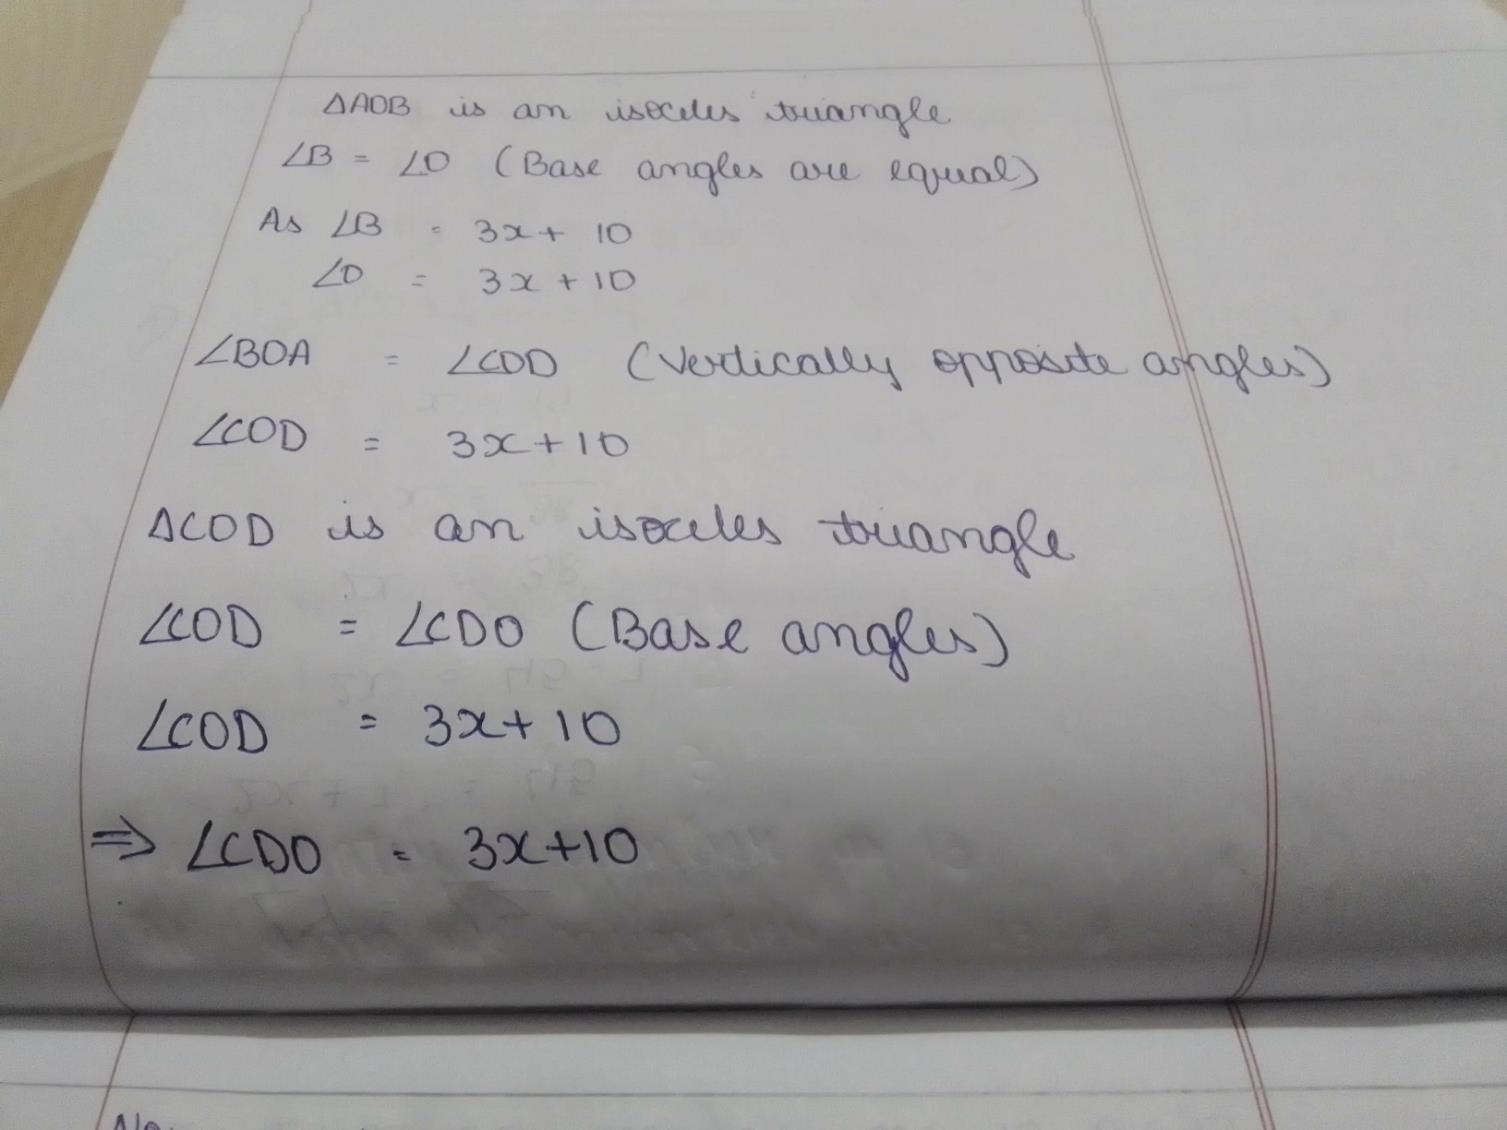 ΔAOB is an isoceles triangle
∠B = ∠O (Base angles are equal)
As ∠B = 3x + 10
∠O = 3x + 10
∠BOA = ∠COD (Vertically opposite angles)
∠COD = 3x + 10
ΔCOD is an isoceles triangle
∠COD = ∠CDO (Base angles)
∠COD = 3x + 10
⇒ ∠CDO = 3x + 10